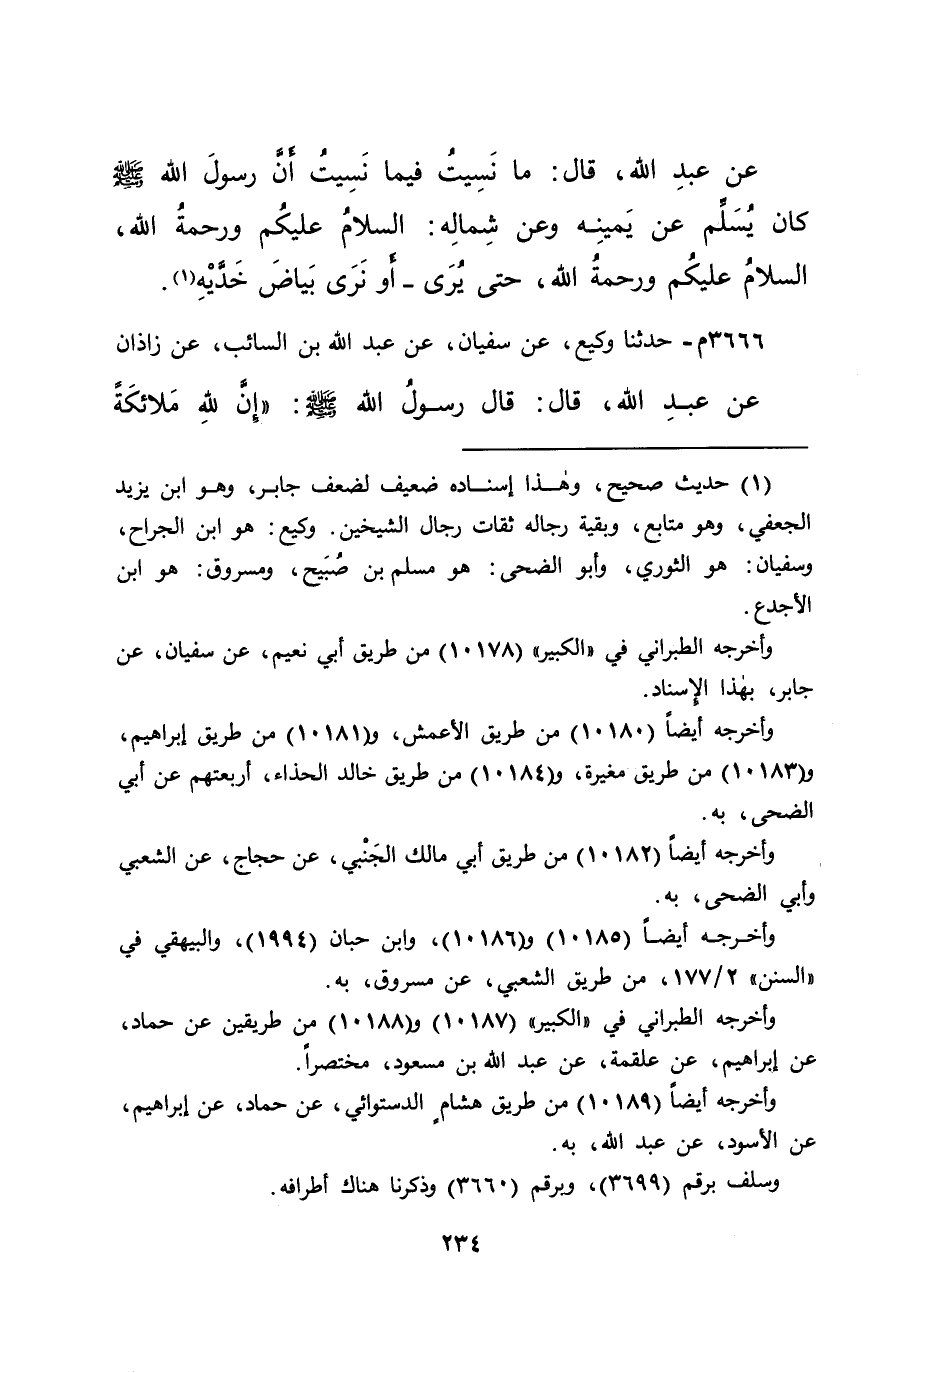 عن عبدِ الله، قال: ما نَسِيتُ فيما نَسِيتُ أَنَّ رسولَ الله ﷺ
كان يُسَلِّم عن يَمينِـه وعن شِمالِه: السلامُ عليكُم ورحمةُ الله،
السلامُ عليكُم ورحمةُ الله، حتى يُرَى ـ أَو نَرَى بَياضَ خَدَّيْهِ(١).
٣٦٦٦م- حدثنا وكيع، عن سفيان، عن عبد الله بن السائب، عن زاذان
عن عبـدِ الله، قال: قال رسـولُ الله ﷺ: «إِنَّ للهِ مَلائكَةً
(١) حديث صحيح، وهٰـذا إسنـاده ضعيف لضعف جابر، وهـو ابن يزيد
الجعفي، وهو متابع، وبقية رجاله ثقات رجال الشيخين. وكيع: هو ابن الجراح،
وسفيان: هو الثوري، وأبو الضحى: هو مسلم بن صُبَيح، ومسروق: هو ابن
الأجدع.
وأخرجه الطبراني في «الكبير» (١٠١٧٨) من طريق أبي نعيم، عن سفيان، عن
جابر، بهٰذا الإسناد.
وأخرجه أيضاً (١٠١٨٠) من طريق الأعمش، و(١٠١٨١) من طريق إبراهيم،
و(١٠١٨٣) من طريق مغيرة، و(١٠١٨٤) من طريق خالد الحذاء، أربعتهم عن أبي
الضحى، به.
وأخرجه أيضاً (١٠١٨٢) من طريق أبي مالك الجَنْبي، عن حجاج، عن الشعبي
وأبي الضحى، به.
وأخـرجـه أيضـاً (١٠١٨٥) و(١٠١٨٦)، وابن حبان (١٩٩٤)، والبيهقي في
«السنن» ١٧٧/٢، من طريق الشعبي، عن مسروق، به.
وأخرجه الطبراني في «الكبير» (١٠١٨٧) و(١٠١٨٨) من طريقين عن حماد،
عن إبراهيم، عن علقمة، عن عبد الله بن مسعود، مختصراً.
وأخرجه أيضاً (١٠١٨٩) من طريق هشامٍ الدستوائي، عن حماد، عن إبراهيم،
عن الأسود، عن عبد الله، به.
وسلف برقم (٣٦٩٩)، وبرقم (٣٦٦٠) وذكرنا هناك أطرافه.
٢٣٤